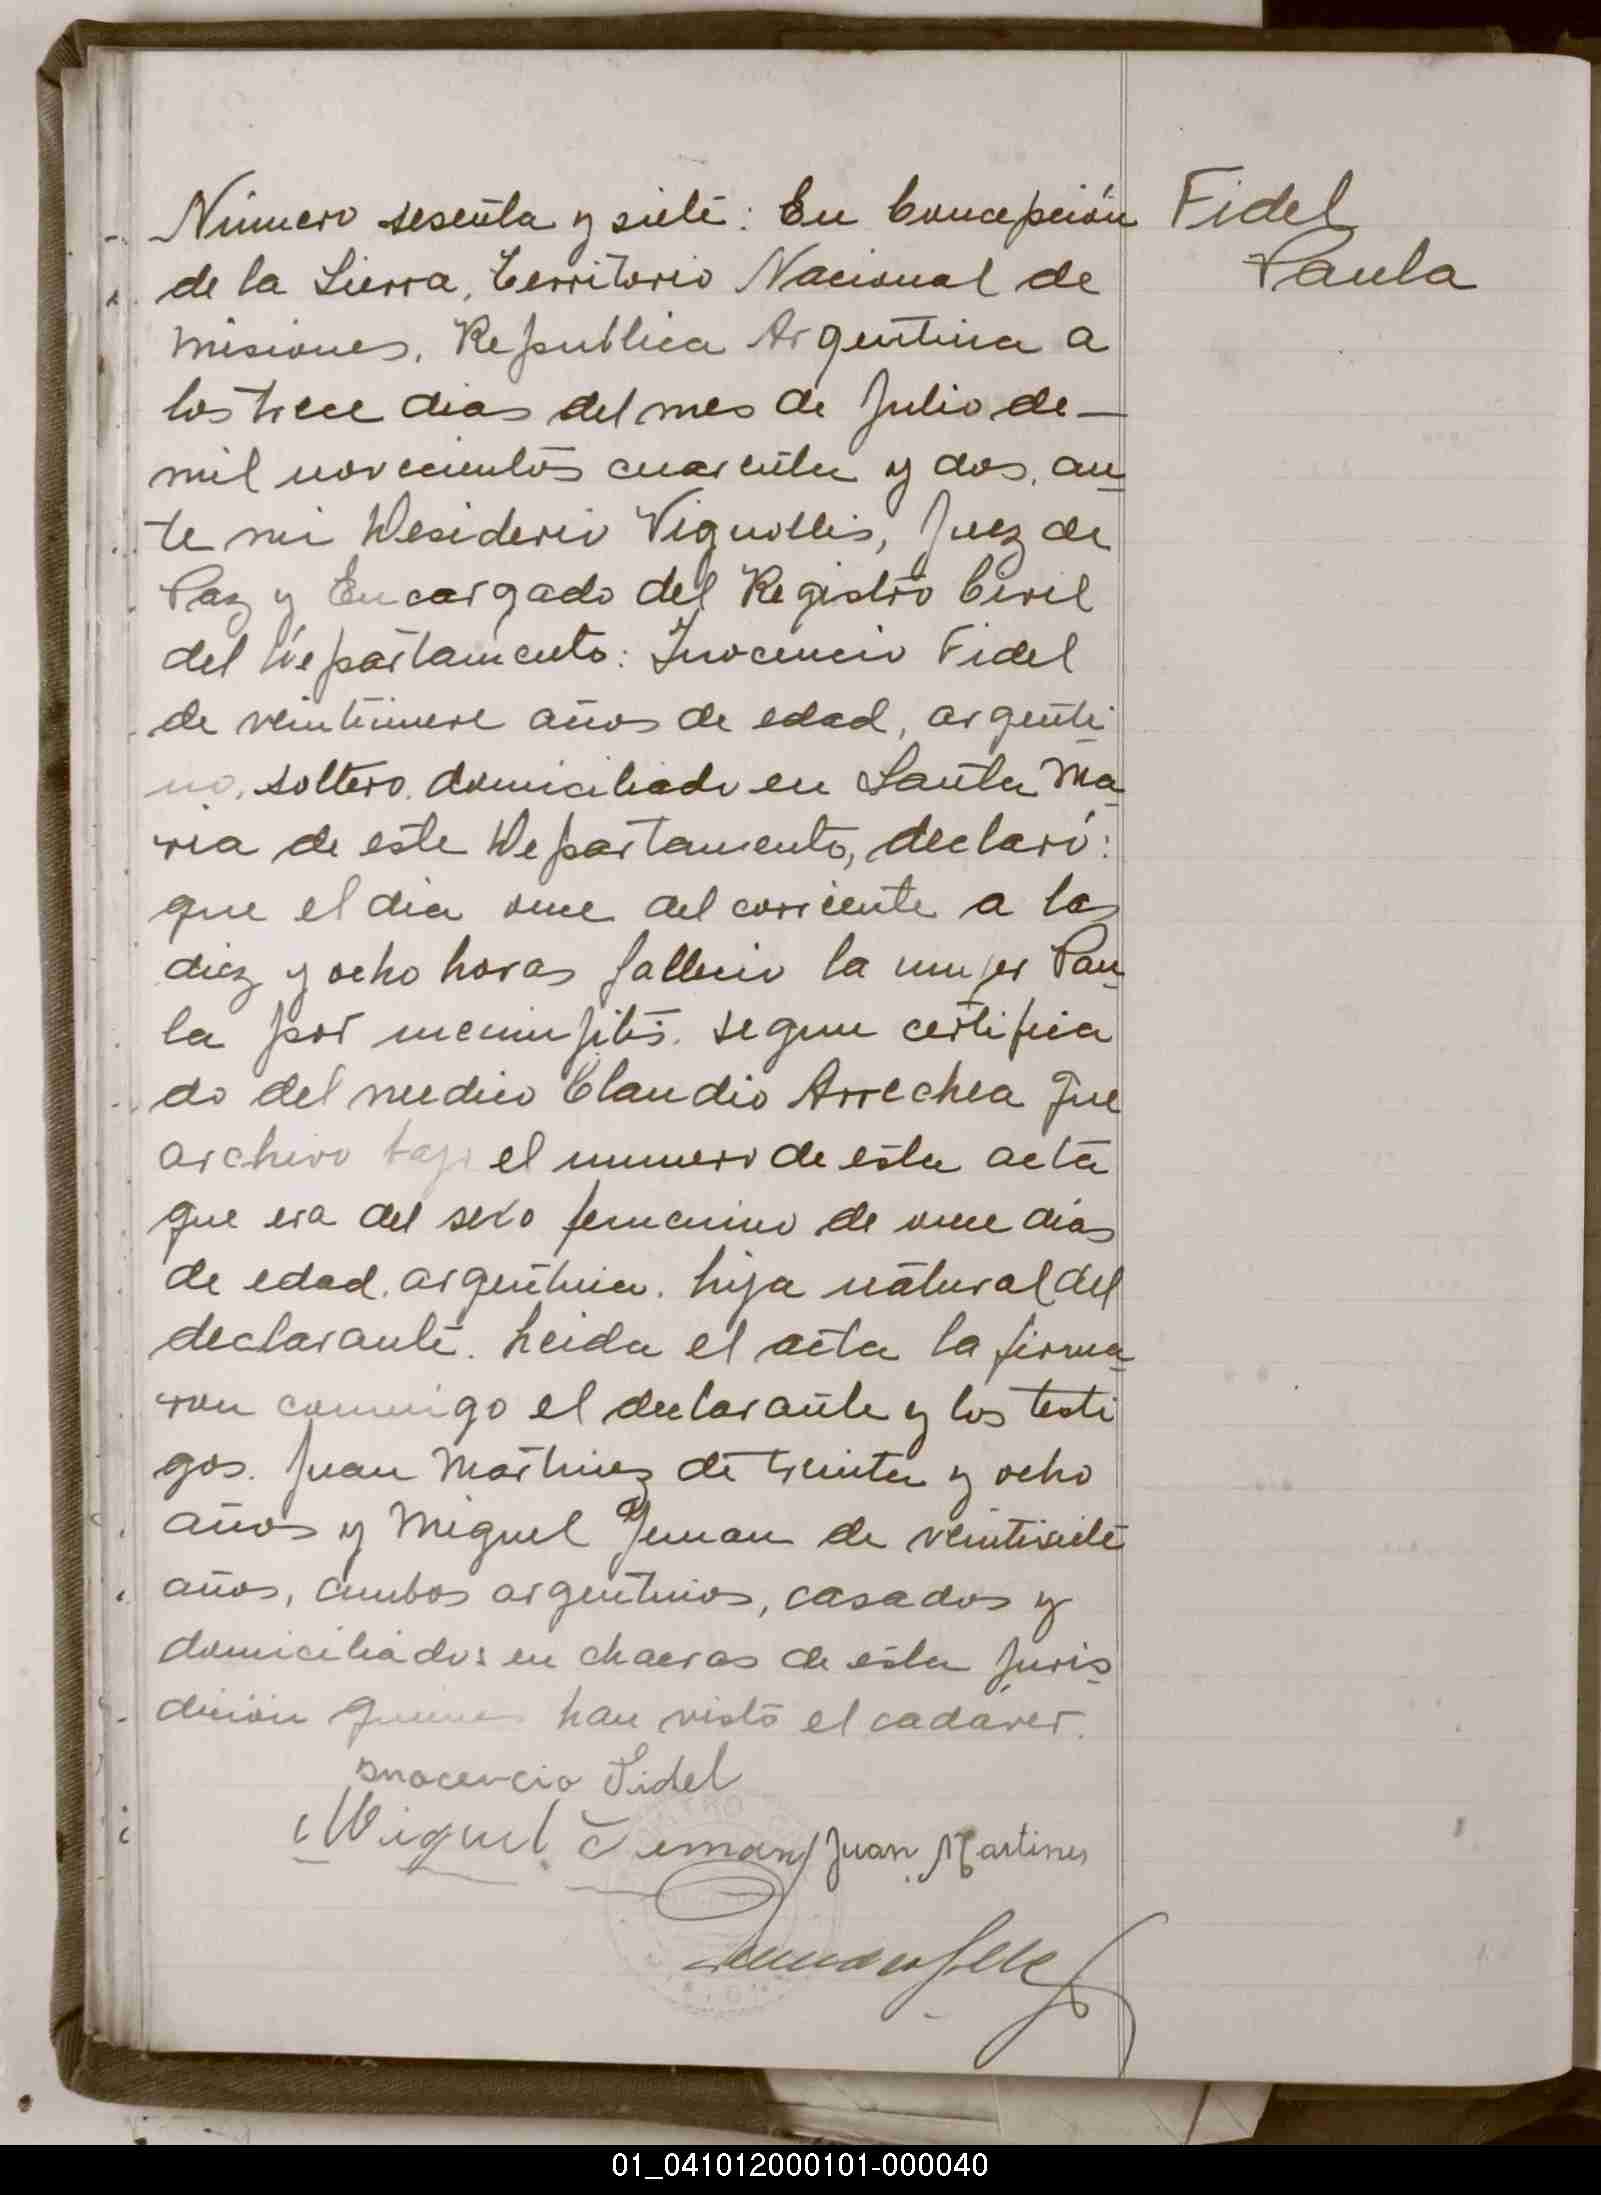 Número sesenta y siete: En Concepción
de la Sierra, Territorio Nacional de
Misiones, Republica Argentina a
los trece dias del mes de Julio de—
mil novecientos cuarenta y dos, an
te mi Desiderio Vignolles, Juez de
Paz y Encargado del Registro Civil
del Departamento: Inocencio Fidel
de veintinueve años de edad, argenti
no, soltero, domiciliado en Santa Ma
ria de este Departamento, declaró:
que el dia once del corriente a las
diez y ocho horas fallecio la mujer Pau
la por meninjitis. segun certifica
do del medico Claudio Arrechea que
archivo bajo el numero de esta acta
que era del sexo femenino de once dias
de edad. argentina. hija natural del
declarante. Leida el acta la firma
ron conmigo el declarante y los testi
gos. Juan Martinez de treinta y ocho
años y Miguel Jeman de veintisiete
años, ambos argentinos, casados y
domiciliados en chacras de esta juris
dicion quienes han visto el cadáver.
Inocencio Fidel
Miguel Jeman Juan Martines
Fidel
Paula
01_041012000101-000040